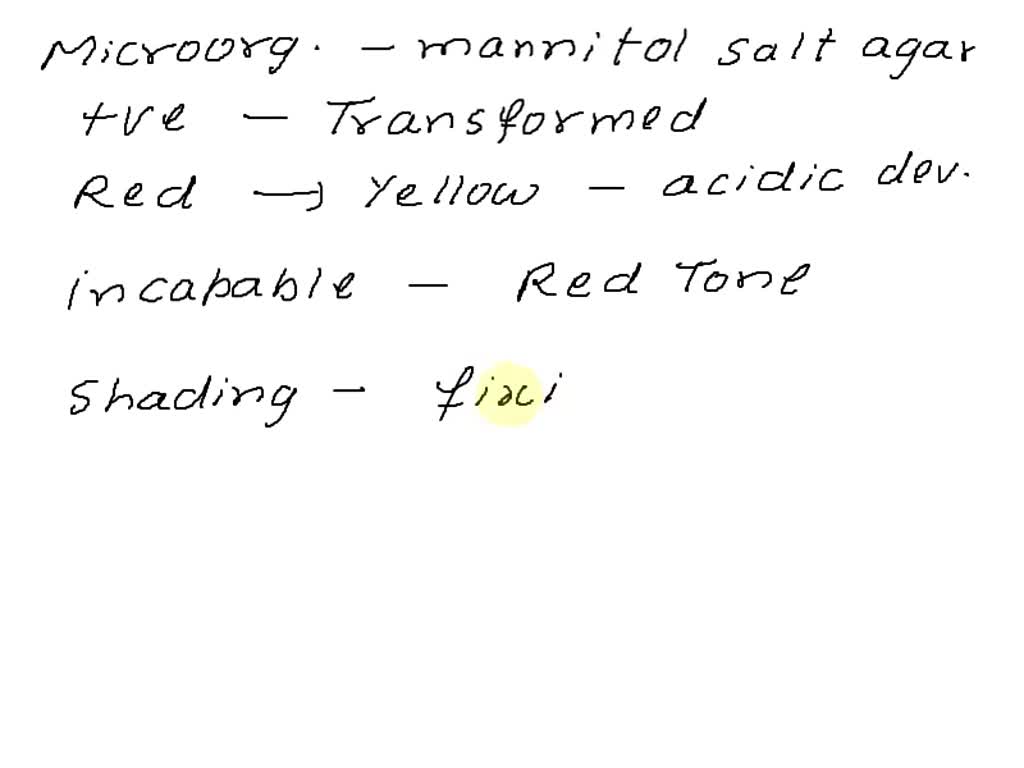 Microorg. - mannitol salt agar
+ve - Transformed
Red → Yellow - acidic dev.
incapable - Red Tone
Shading - fixi